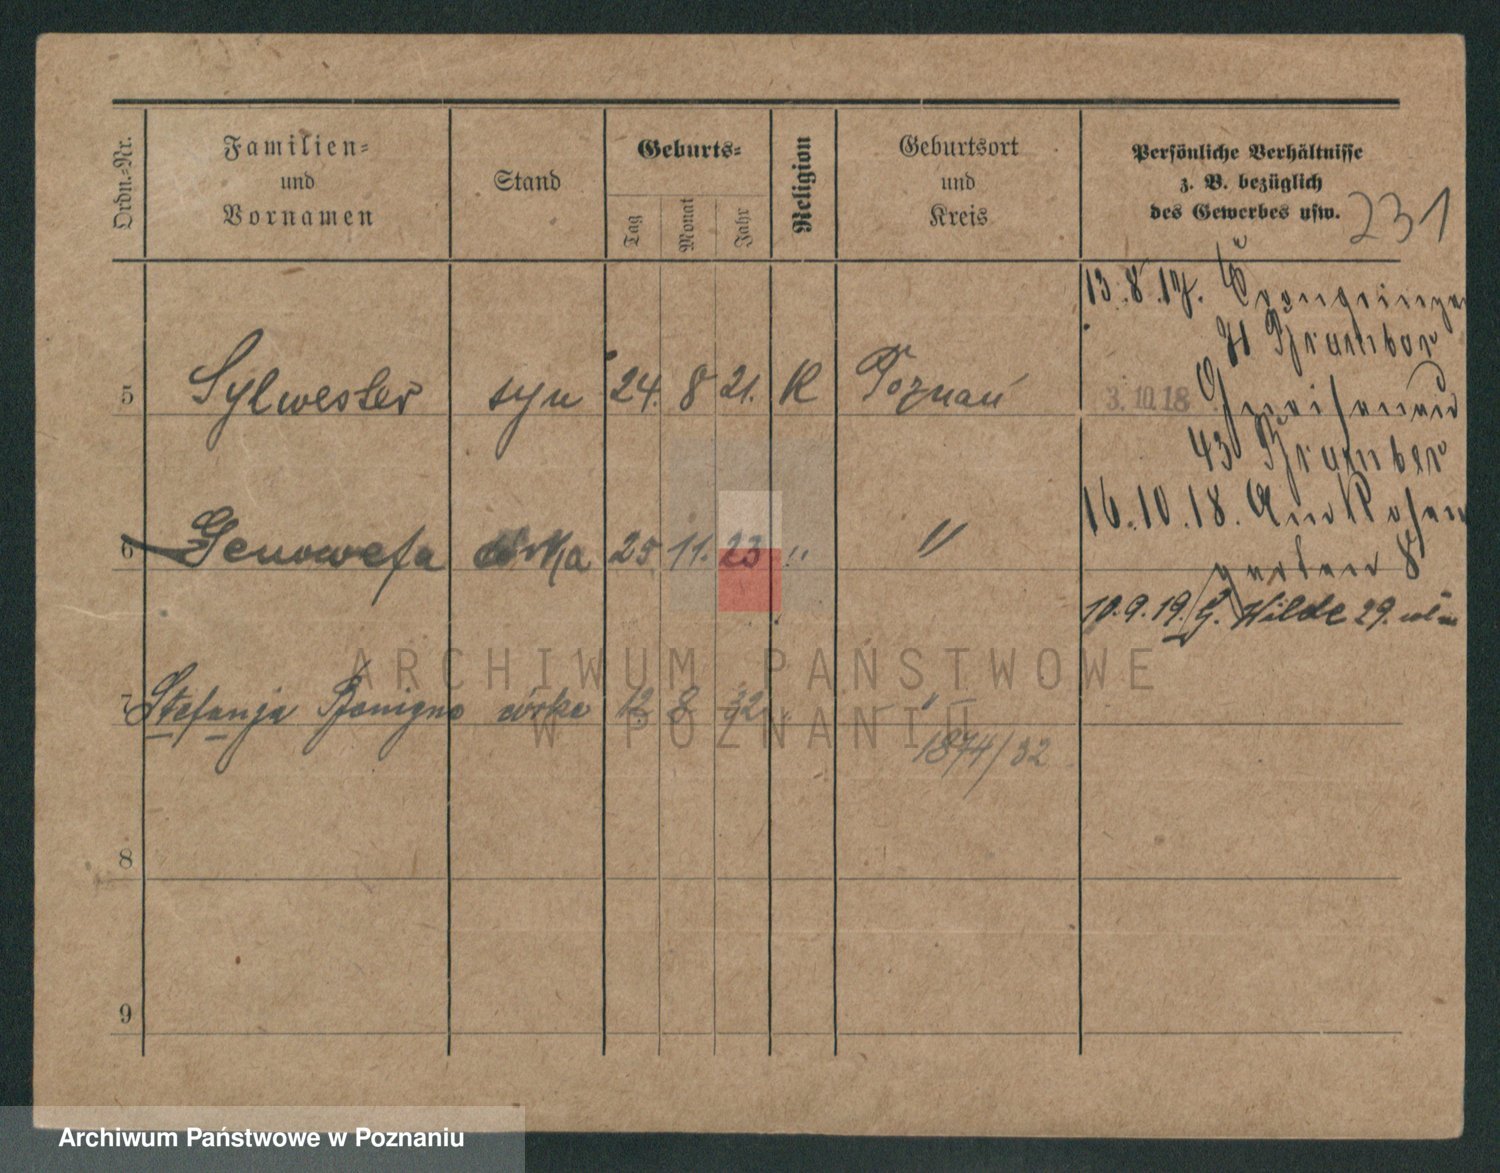 Ordn.-Nr.
Familien-
und
Vornamen
Stand
Geburts-
Tag
Monat
Jahr
Religion
Geburtsort
und
Kreis
Persönliche Verhältnisse
z. B. bezüglich
des Gewerbes usw.
231
13.8.17.
3.10.18
43
16.10.18. Am Rosen
garten 8
10.9.19. G. Wilde 29.
5 Sylwester syn 24. 8 21. K Poznań
6 Genowefa córka 25 11. 23 " "
7 Stefanja córka 12 8 32 " "
1874/32
8
9
ARCHIWUM PAŃSTWOWE
W POZNANIU
Archiwum Państwowe w Poznaniu